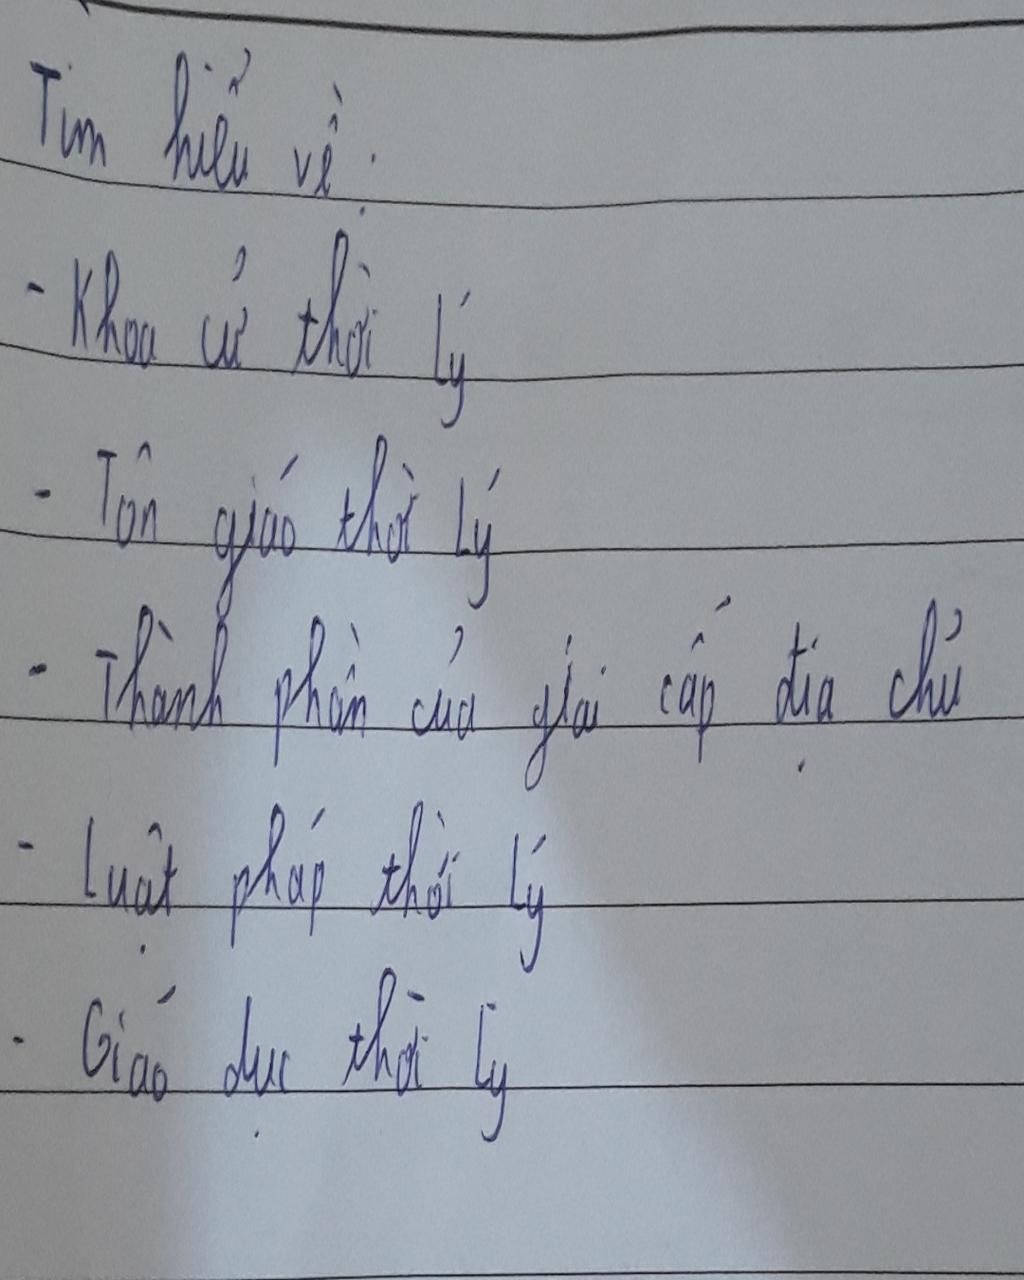 Tìm hiểu về:
- Khoa cử thời Lý
- Tôn giáo thời Lý
- Thành phần của giai cấp địa chủ
- Luật pháp thời Lý
- Giáo dục thời Lý